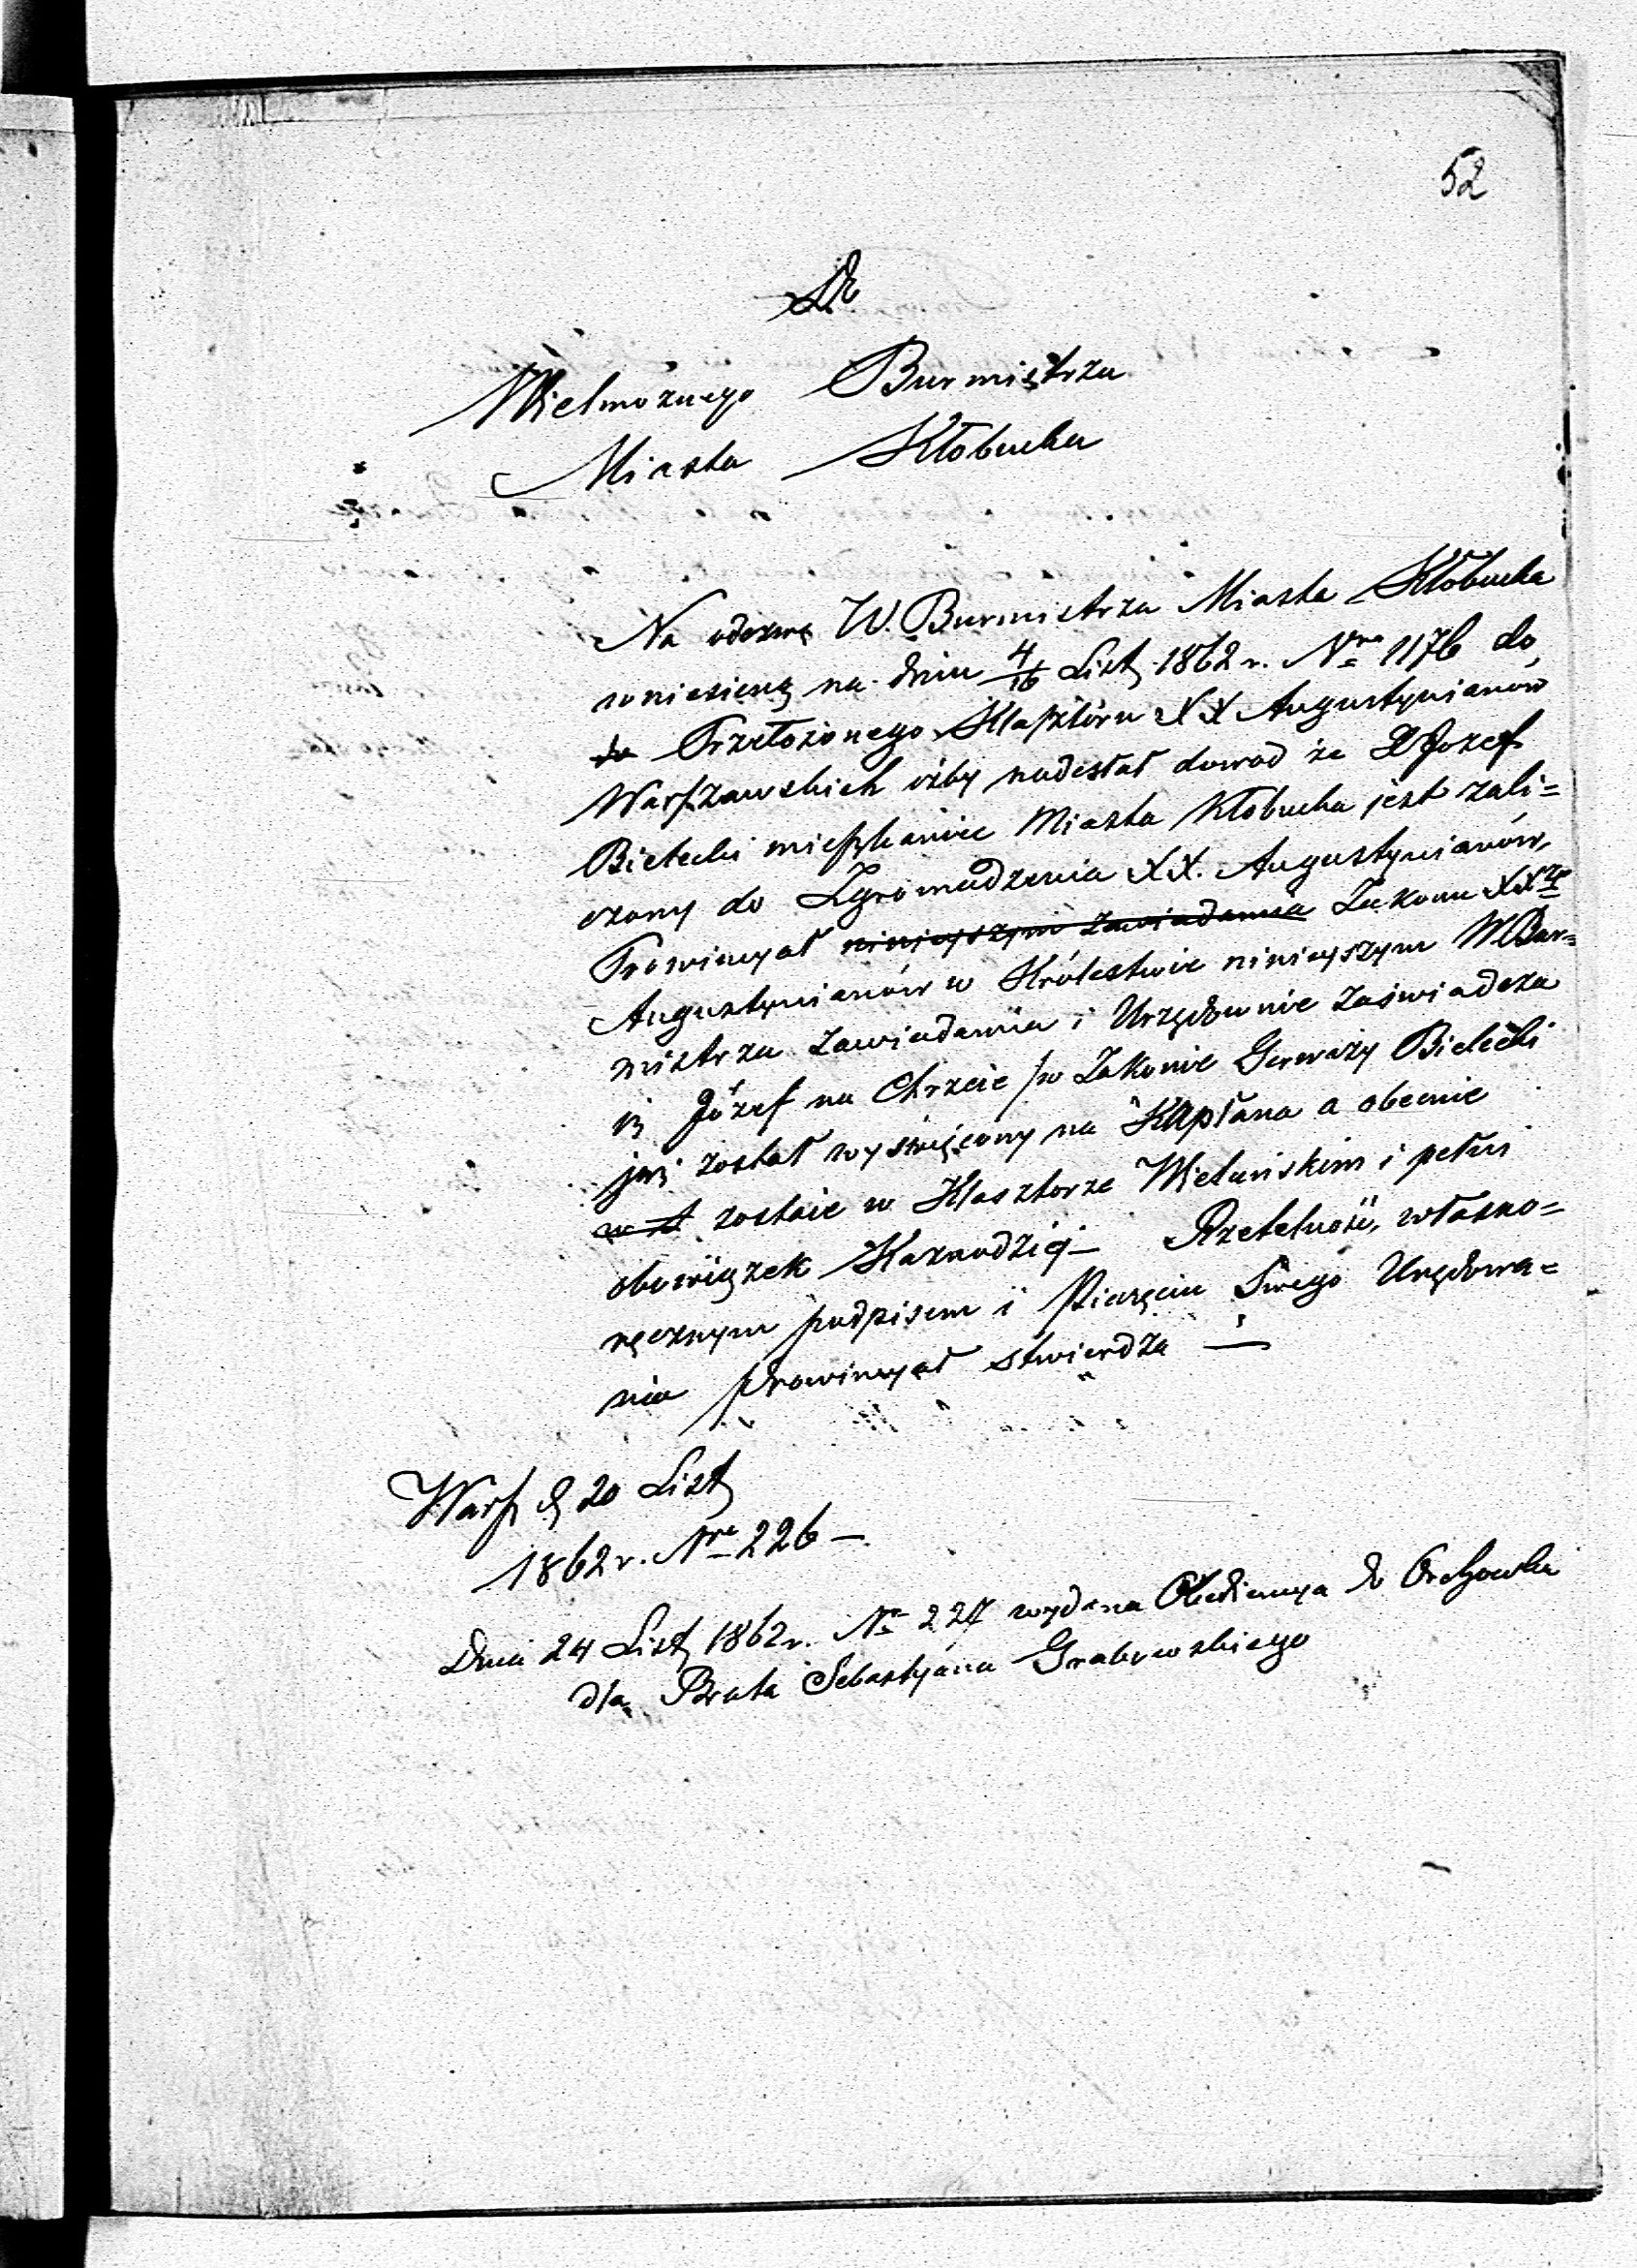 52
Do
Wielmożnego Burmistrza
Miasta Kłobucka
Na odezwę W. Burmistrza Miasta Kłobucka
wniesioną na dniu 4/16 List. 1862 r. Nro 1176 do
do Przełożonego Klasztoru XX Augustyianów
Warszawskich ażby nadesłał dowod że X Jozef
Bielecki mieszkaniec Miasta Kłobucka jest zali=
czony do Zgromadzenia XX. Augustyianów,
Prowincyał niniejszym zawiadamia Zakonu XX
Augustyianów w Królestwie niniejszym WBur=
mistrza zawiadamia i Urzędownie zaświadcza
iż Józef na Chrzcie /w Zakonie Gerwazy Bielecki
już został wyświęcony na Kapłana a obecnie
zostaie w Klasztorze Wieluńskim i pełni
obowiązek Kaznodziei — Rzetelność, własno=
ręcznym podpisem i Pieczęcią Swego Urzędowa=
nia Prowincyał stwierdza —
Warsz d. 20 List.
1862 r. Nro 226 —
Dnia 24 List. 1862 r. No 227 wydana Obediencya do Orchowka
dla Brata Sebastyana Grabowskiego